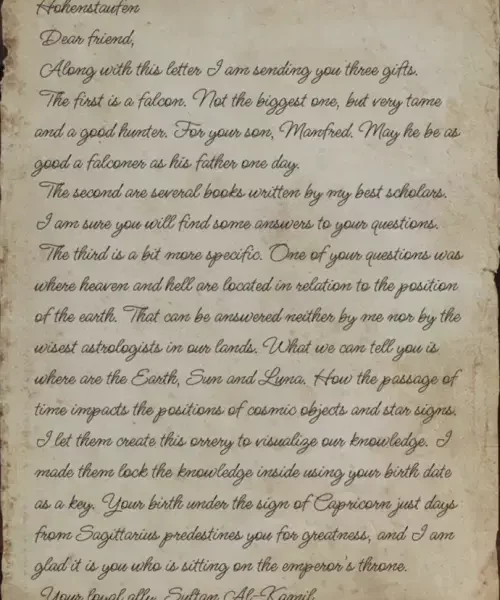 Hohenstaufen
Dear friend,
Along with this letter I am sending you three gifts.
The first is a falcon. Not the biggest one, but very tame
and a good hunter. For your son, Manfred. May he be as
good a falconer as his father one day.
The second are several books written by my best scholars.
I am sure you will find some answers to your questions.
The third is a bit more specific. One of your questions was
where heaven and hell are located in relation to the position
of the earth. That can be answered neither by me nor by the
wisest astrologists in our lands. What we can tell you is
where are the Earth, Sun and Luna. How the passage of
time impacts the positions of cosmic objects and star signs.
I let them create this orrery to visualize our knowledge. I
made them lock the knowledge inside using your birth date
as a key. Your birth under the sign of Capricorn just days
from Sagittarius predestines you for greatness, and I am
glad it is you who is sitting on the emperor's throne.
Your loyal ally, Sultan Al-Kamil